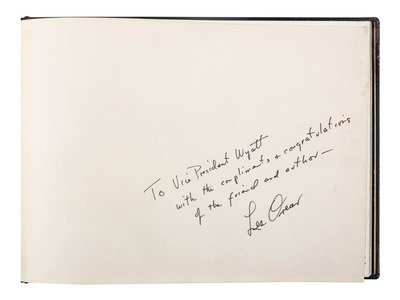 To Vice President Wyatt
with the compliments + congratulations
of the friend and author—
Les